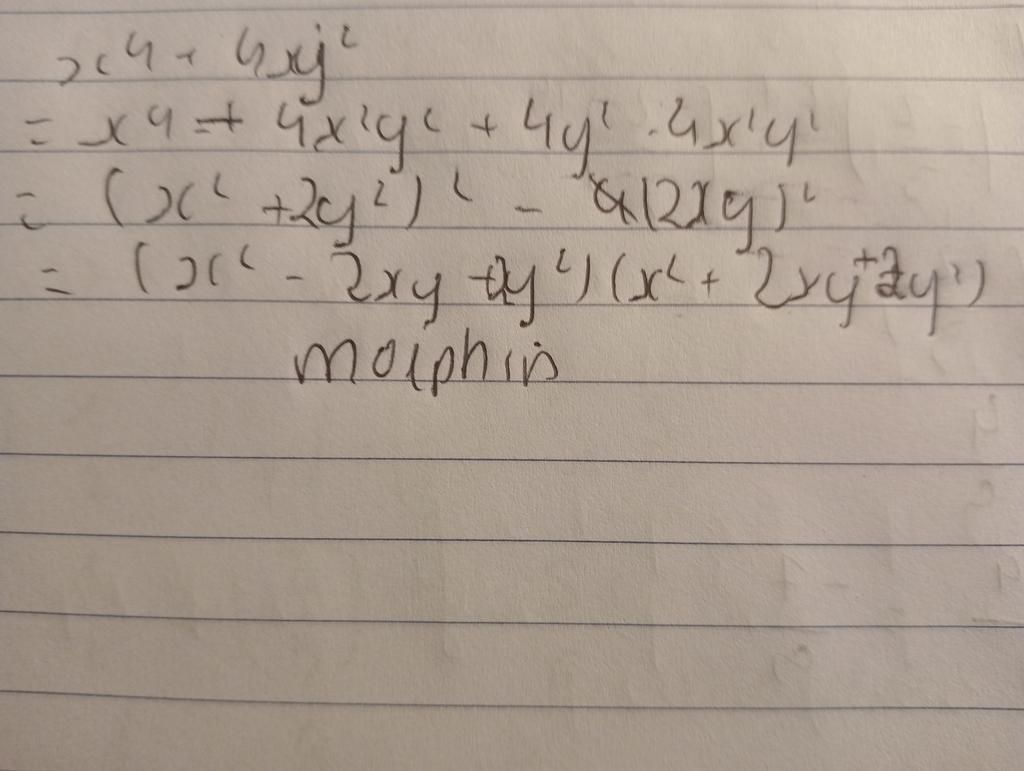 x⁴ + 4xy²
= x⁴ + 4x²y² + 4y² - 4x²y²
= (x² + 2y²)² - (2xy)²
= (x² - 2xy + 2y²)(x² + 2xy + 2y²)
molphin